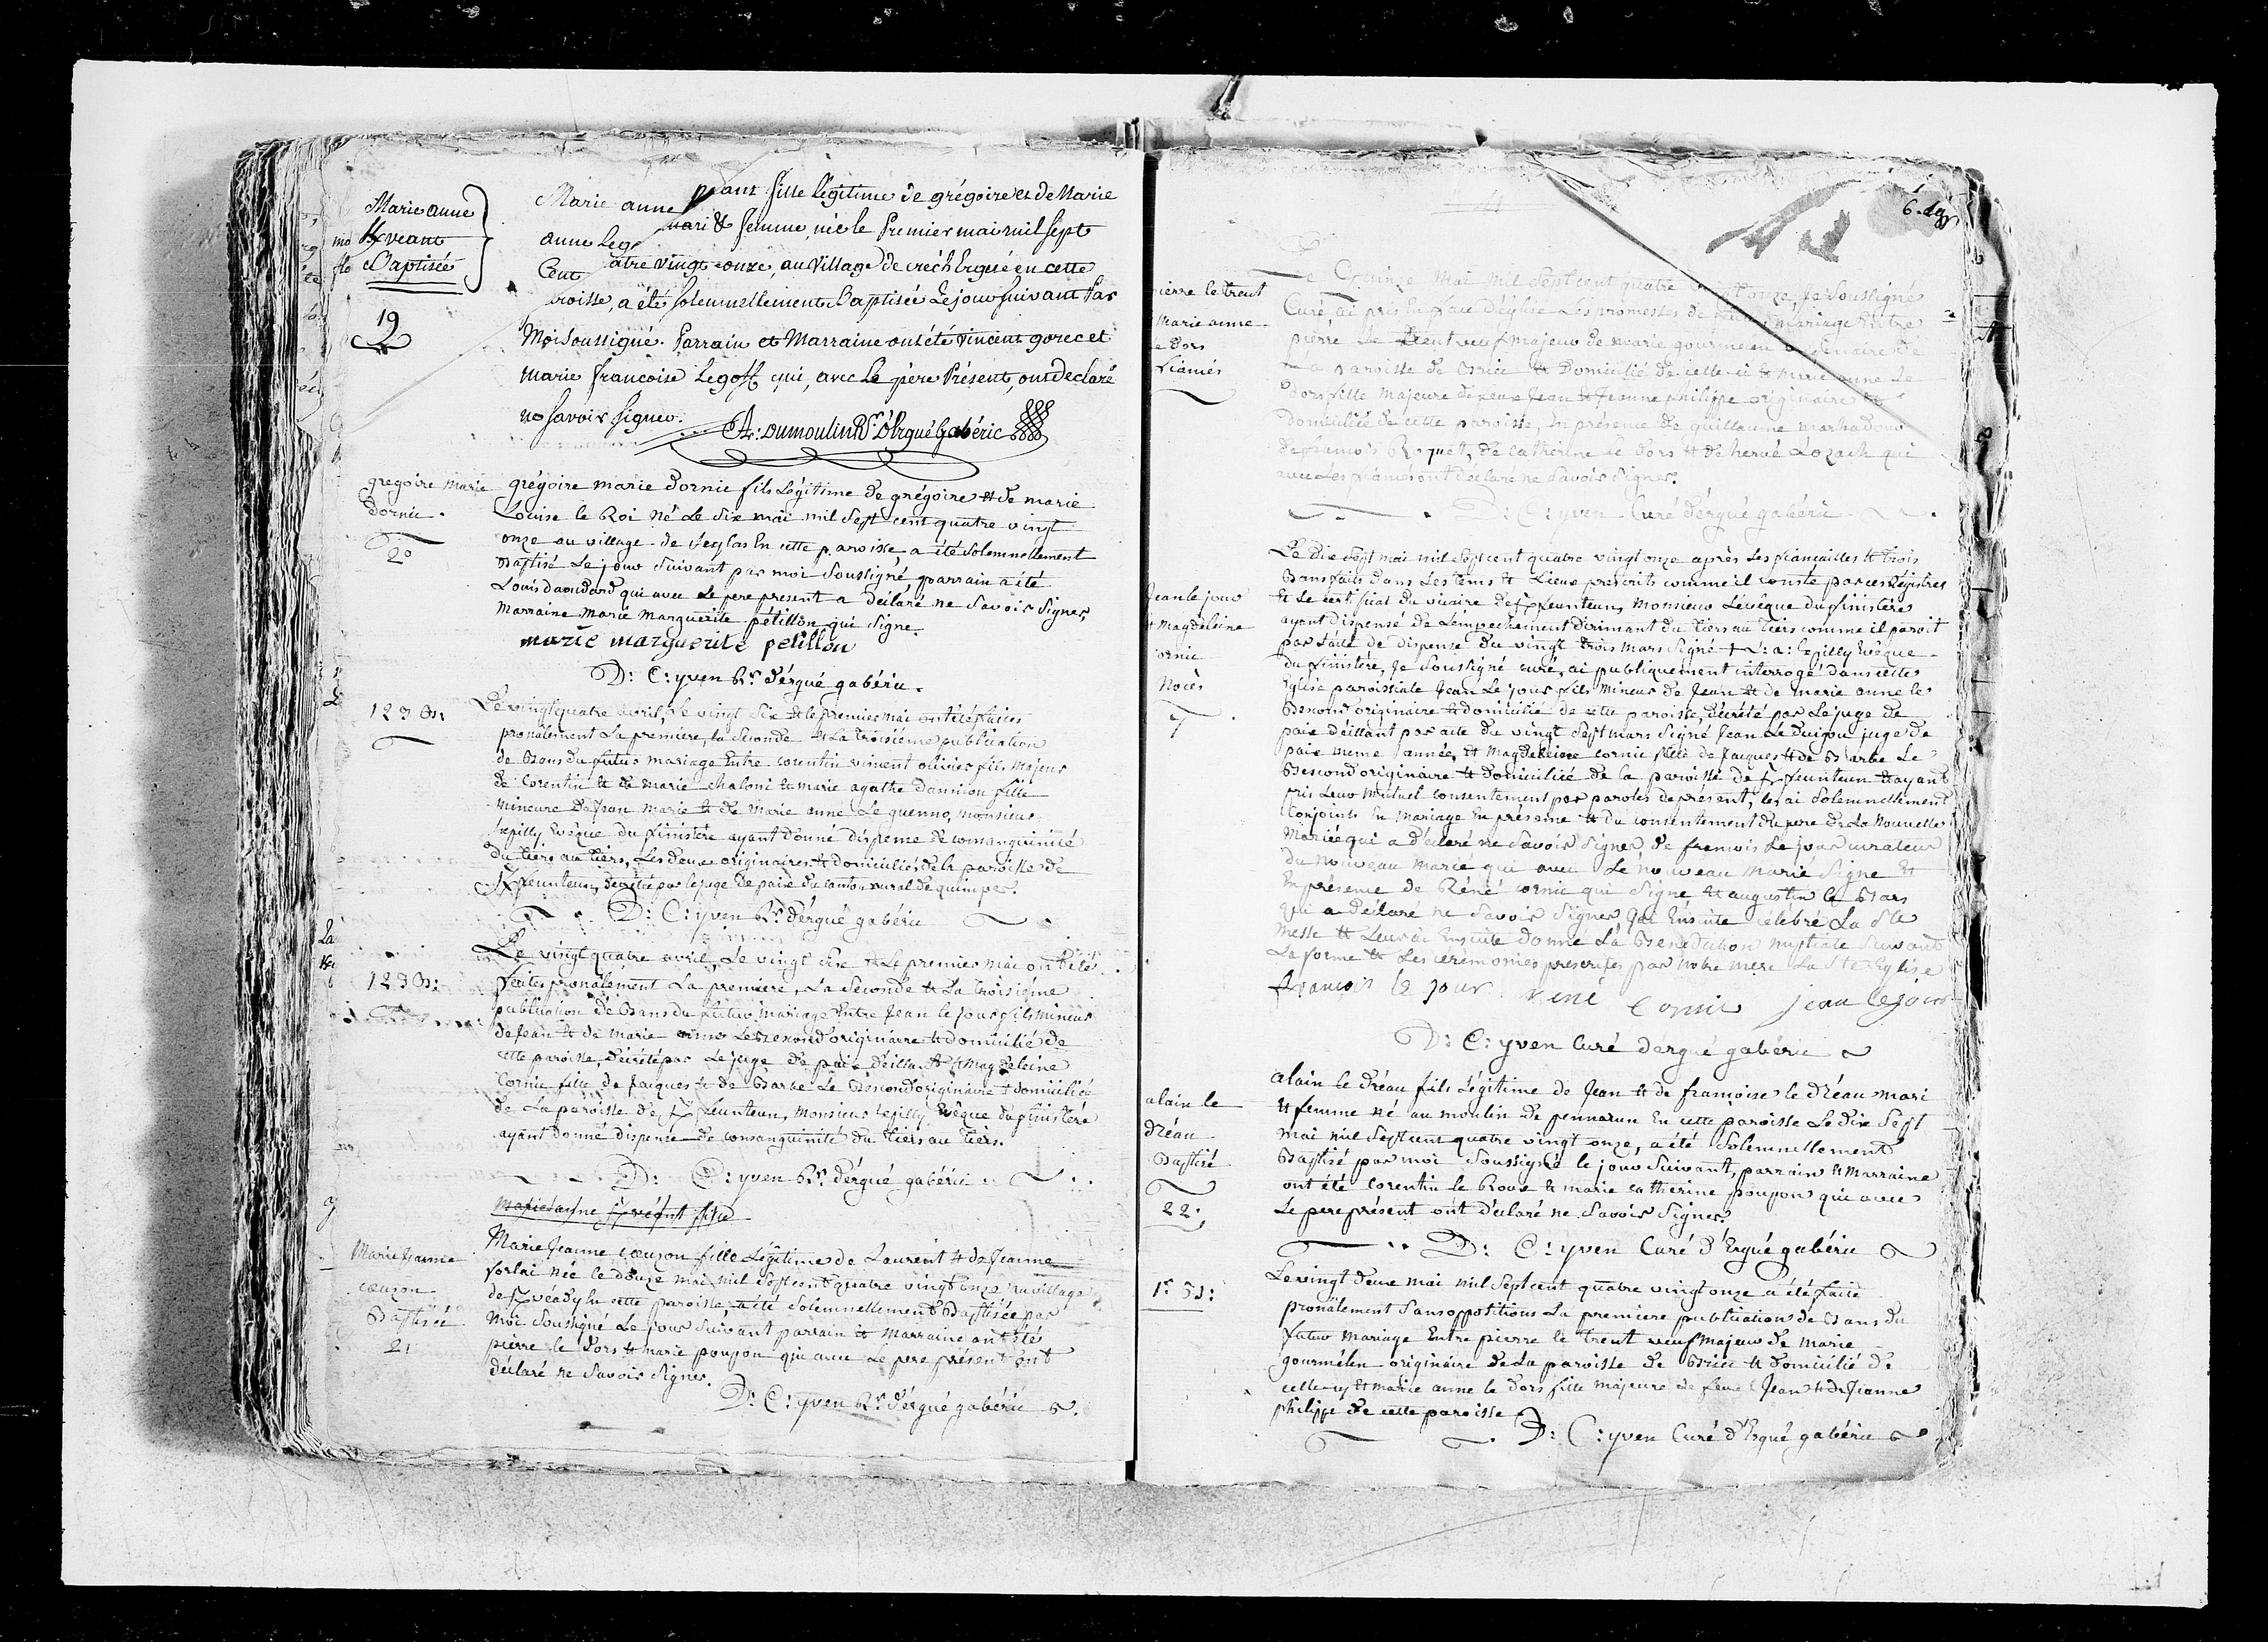 Marie anne
Baptisée
19
Marie anne
fille légitime de grégoire et de Marie
anne Lego
mari & femme, née le Premier mai mil sept
Cent
atre vingt onze, au Village de créch Ergué en cette
roisse, a été solemnellement Baptisée Le jour suivant Par
Moi soussigné. Parrain et Marraine ont été vincent gorec et
marie francoise Legoff qui, avec Le père Présent, ont declaré
ne savoir signer.
A: Dumoulin Rr. d'Ergué Gabéric
gregoire marie
Cornic.
20
grégoire marie Cornic fils Légitime de grégoire et de marie
Louise le Roi né Le six mai mil sept cent quatre vingt
onze au village de en cette paroisse, a été solemnellement
Baptisé Le jour suivant par moi soussigné parrain a été
Louis qui avec Le pere present a déclaré ne savoir signer,
Marraine Marie Marguerite pétillon qui signe.
marie marguerite petillon
D: C: yven Rr. d'érgué gabéric.
1 2 3 B:
Le vingt quatre avril, Le vingt six et le premier mai ont été faites
pronalement La premiere, la seconde et La troisiéme publication
de Bans du futur mariage Entre corentin vincent olivier fils majeur
de Corentin et de marie chaloni et marie agathe Dannion fille
mineure de Jean marie et de marie anne Le quenno, monsieur
Expilly Evêque du finistère ayant donné dispense de consanguinité
du tiers au tiers, Les deux originaires et domiciliés de la paroisse de
feunteun, décrétée par le juge de paix du canton rural de quimper.
D: C: yven Rr. d'érgué gabéric
1 2 3 B:
Le vingt quatre avril, Le vingt six et Le premier mai ont été
faites pronalement La premiere, La seconde et La troisiéme
publication de Bans du futur mariage Entre Jean le jour fils mineur
de Jean et de marie anne Le Bescond originaire et domicilié de
cette paroisse, décrété par Le juge de paix et Magdeleine
Cornic fille de Jacques et de Barbe Le Bescond originaire et domiciliée
de La paroisse de feunteun, monsieur Expilly Evêque du finistère
ayant donné dispense de consanguinité du tiers au tiers.
D: C: yven Rr. d'érgué gabéric
Marie Jeanne
Baptisée
21
Marie Jeanne fille Légitime de Laurent et de Jeanne
née le douze mai mil sept cent quatre vingt onze au village
de en cette paroisse, a été solemnellement Baptisée par
moi soussigné Le jour suivant parrain et marraine ont été
pierre le Dors et marie poupon qui avec Le pere présent ont
déclaré ne savoir signer.
D: C: yven Rr. d'érgué gabéric
ierre le treut
Marie anne
e Dors
fiancés
Le mai mil sept cent quatre onze, Je soussigné
Curé, ai pris En face d'église Les promesses de mariage Entre
pierre Le treut veuf majeur de marie gourmelen originaire de
La paroisse de Briec et Domicilié de celle-ci et marie anne Le
Dors fille Majeure de feux Jean et Jeanne philippe originaire et
domiciliée de cette paroisse, En présence de guillaume
de francois de catherine le Dors et de hervé Lozach qui
avec Les fiancés ont déclaré ne savoir signer.
D: C: yven Curé d'érgué gabéric
Jean le jour
et Magdeleine
ornic
Noces
7
Le Dix sept mai mil sept cent quatre vingt onze après Les fiançailles et trois
Bans faits dans Les tems et Lieux prescrits comme il conste par ces Régistres
et Le certificat du vicaire de feunteun, Monsieur L'évêque du finistére
ayant dispensé de L'empechement dirimant du tiers au tiers comme il paroit
par L'acte de dispense du vingt trois mars signé Expilly Evêque
du finistére, Je soussigné curé, ai publiquement interrogé dans cette
Eglise paroissiale Jean Le jour fils mineur de Jean et de marie anne le
Bescond originaire et domicilié de cette paroisse, décrété par Le juge de
paix par acte du vingt sept mars signé Jean juge de
paix meme année, et Magdeleine cornic fille de Jacques et de Barbe Le
Bescond originaire et domiciliée de la paroisse de feunteun et ayant
pris Leur Mutuel consentement par paroles de présent, les ai solemnellement
Conjoints En mariage En présence et du consentement du pere de La nouvelle
Mariée qui a déclaré ne savoir signer, de francois le jour curateur
du nouveau marié qui avec Le nouveau marié signe et
En présence de Réné cornic qui signe et augustin le Bars
qui a déclaré ne savoir signer, j'ai Ensuite célébré La ste
messe et Leur ai Ensuite donné La Benediction nuptiale suivant
La forme et Les cérémonies prescrites par Notre Mere La Ste Eglise
francois le jour René Cornic jean le jour
D: C: yven Curé dergué gabéric
alain le
dréau
Baptisé
22.
alain le dréau fils Légitime de Jean et de francoise le dréau mari
et femme né au moulin de pennarun En cette paroisse Le dix sept
mai mil sept cent quatre vingt onze, a été solemnellement
Baptisé par moi soussigné le jour suivant, parrain et Marraine
ont été corentin le Roux et marie catherine poupon qui avec
Le pere présent ont déclaré ne savoir signer.
D: C: yven Curé d'Ergué gabéric
1r. B:
Le vingt deux mai mil sept cent quatre vingt onze a été faite
pronalement sans oppositions La premiere publication de Bans du
futur mariage Entre pierre le treut veuf majeur de marie
gourmélen originaire de La paroisse de Briec et domicilié de
celle-cy et marie anne le Dors fille majeure de feux Jean et de Jeanne
philippe de cette paroisse
D: C: yven Curé d'Ergué gabéric